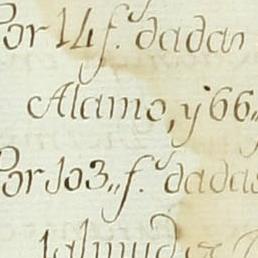 Por 14 f.s dadas
Alamo, y 66„
Por 103„ f.s dadas